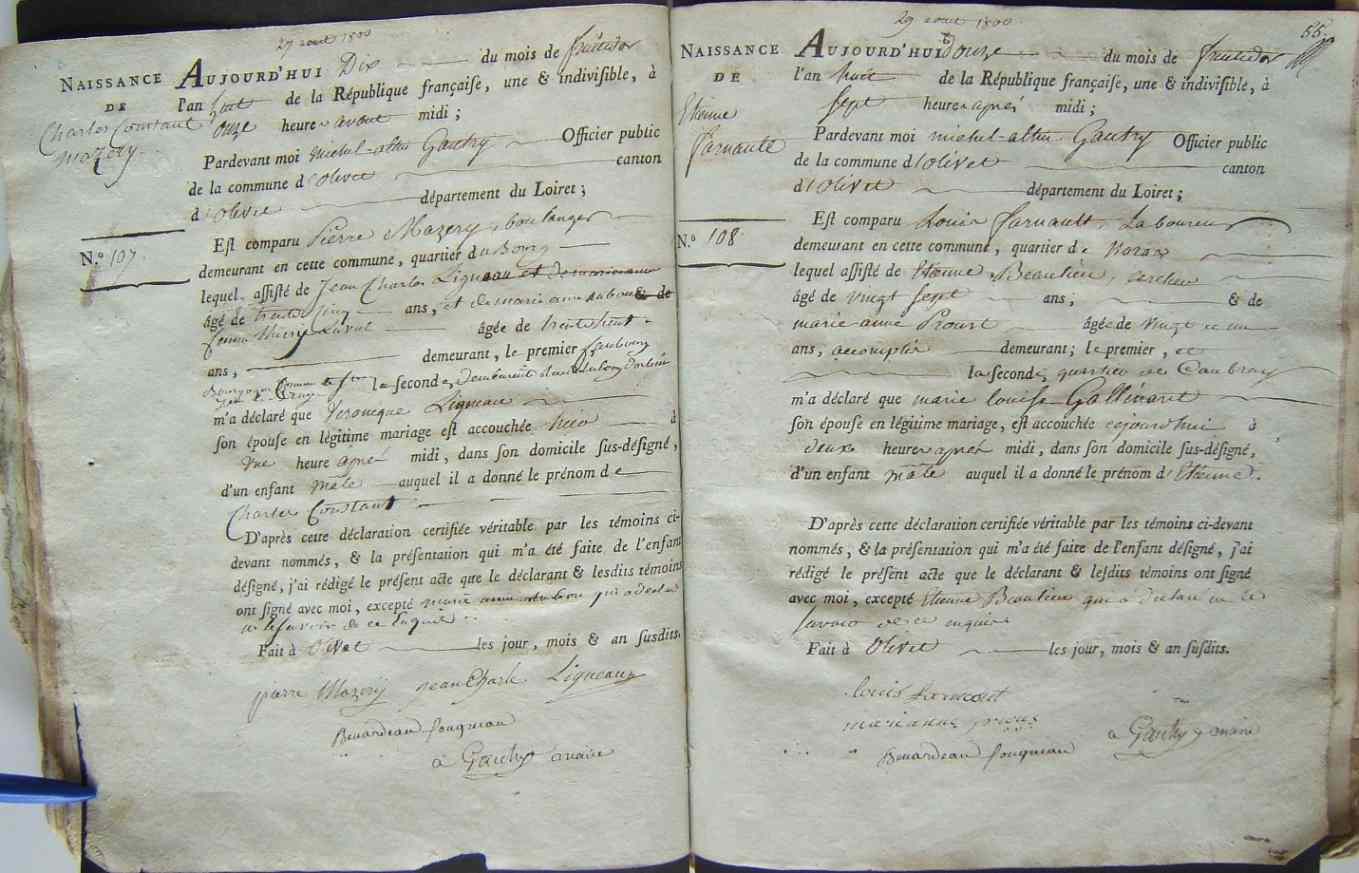 aout 1800
NAISSANCE
DE
Charles Constant
Mazery
N.º 107.
AUJOURD'HUI Dix du mois de fructidor
l'an huit de la République françaiſe, une & indiviſible, à
onze heures avant midi ;
Pardevant moi michel-altin Gautry Officier public
de la commune d'Olivet canton
d'Olivet département du Loiret ;
Eſt comparu Pierre Mazery, boulanger
demeurant en cette commune, quartier du Bourg
lequel aſſiſté de Jean Charles Ligneau
âgé de trente cinq ans, et de marie anne & de
âgée de trente huit
ans, demeurant, le premier faubourg
Bourgogne la seconde,
m'a déclaré que Veronique Ligneau
ſon épouse en légitime mariage eſt accouchée hier à
une heure après midi, dans ſon domicile ſus-déſigné,
d'un enfant mâle auquel il a donné le prénom de
Charles Constant
D'après cette déclaration certifiée véritable par les témoins ci-
devant nommés, & la préſentation qui m'a été faite de l'enfant
déſigné, j'ai rédigé le préſent acte que le déclarant & leſdits témoins
ont ſigné avec moi, excepté marie anne qui a déclaré
ne le savoir de ce enquis
Fait à Olivet les jour, mois & an ſuſdits.
pierre Mazery jean Charle Ligneau
Beuardeau fouqueau
Gautry maire
29 aout 1800
55.
NAISSANCE
DE
Etienne
farnault
N.º 108.
AUJOURD'HUI Douze du mois de fructidor
l'an huit de la République françaiſe, une & indiviſible, à
sept heures après midi ;
Pardevant moi michel-altin Gautry Officier public
de la commune d'Olivet canton
d'Olivet département du Loiret ;
Eſt comparu Louis farnault, Laboureur
demeurant en cette commune, quartier de
lequel aſſiſté de Etienne Beaulieu,
âgé de vingt sept ans, & de
marie anne Proust âgée de vingt et un
ans, accomplis demeurant ; le premier, et
la seconde, quartier de Caubray
m'a déclaré que marie louise
ſon épouse en légitime mariage, eſt accouchée cejourdhui à
deux heures après midi, dans ſon domicile ſus-déſigné,
d'un enfant mâle auquel il a donné le prénom d'Etienne.
D'après cette déclaration certifiée véritable par les témoins ci-devant
nommés, & la préſentation qui m'a été faite de l'enfant déſigné, j'ai
rédigé le préſent acte que le déclarant & leſdits témoins ont ſigné
avec moi, excepté Etienne Beaulieu qui a déclaré ne le
savoir de ce enquis
Fait à Olivet les jour, mois & an ſuſdits.
louis
marianne
Beuardeau fouqueau
Gautry maire